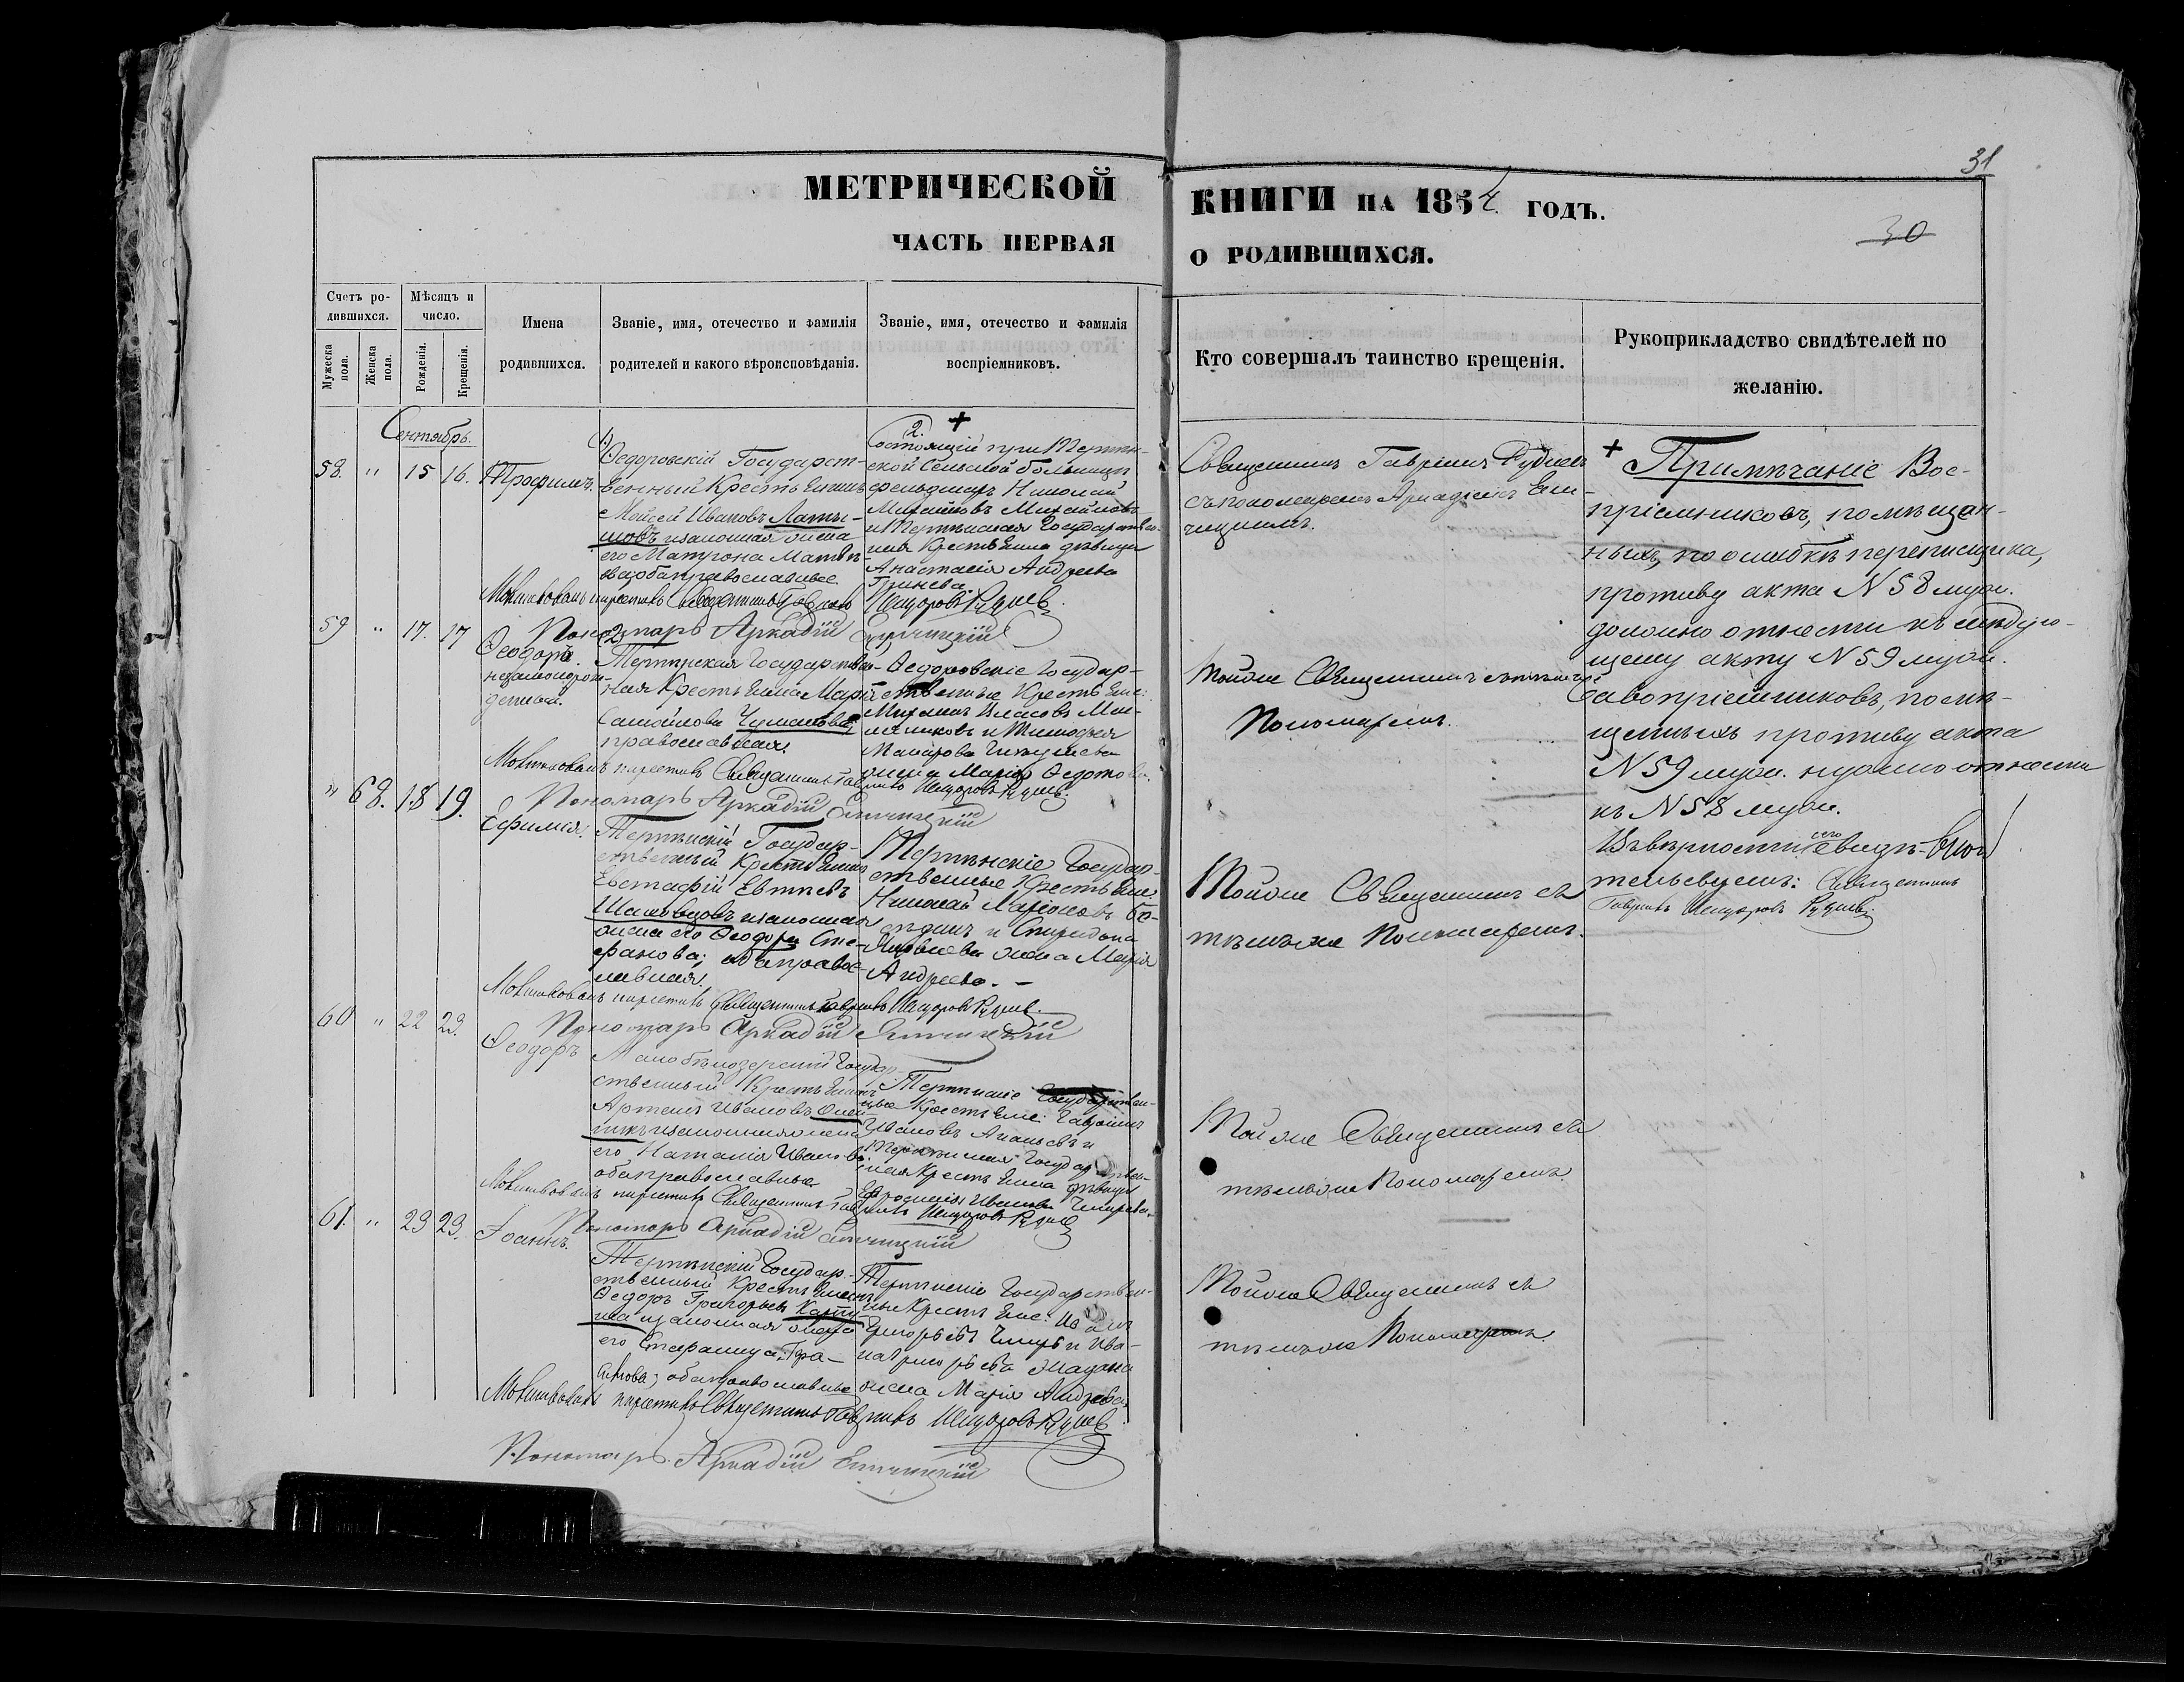 31
МЕТРИЧЕСКОЙ
КНИГИ НА 1854 ГОДЪ.
30
ЧАСТЬ ПЕРВАЯ
О РОДИВШИХСЯ.
Счетъ ро-
дившихся.
Мѣсяцъ и
число.
Мужеска
пола.
Женска
пола.
Рожденія.
Крещенія.
Имена
родившихся.
Званіе, имя, отечество и фамилія
родителей и какого вѣроисповѣданія.
Званіе, имя, отечество и фамилія
воспріемниковъ.
Кто совершалъ таинство крещенія.
Рукоприкладство свидѣтелей по
желанію.
Сентябрь.
58. " 15 16. Трофимъ.
1)
Ѳедоровскій Государст-
венный Крестьянинъ
Мойсей Ивановъ Латы-
шовъ и законная жена
его Матрона Матвѣ
ва оба православные
2. +
Состоящій при Терпѣн-
ской Сельской больницѣ
фельдшеръ Николай
Михайловъ
и Терпѣнская Государствен-
ная Крестьянка дѣвица
Анастасія Андреева
Гринева
Священникъ Гавріилъ Рудневъ
съ пономаремъ Аркадіемъ
+ Примѣчаніе Вос-
пріемниковъ, помѣщен-
ныхъ, по ошибкѣ переписчика,
противу акта N 58 муж.
должно отнести къ слѣдую-
щему акту N 59 муж.
а воспріемниковъ, помѣ-
щенныхъ противу акта
N 59 муж. нужно отнести
къ N 58 муж.
Въ вѣрности сего свидѣ-
тельствуемъ: Священникъ
Гавріилъ Рудневъ
Молитвовалъ и крестилъ Священникъ Гавріилъ Рудневъ.
Пономарь Аркадій
59 " 17. 17 Ѳеодоръ.
незаконорож-
денной.
2)
Терпѣнская Государствен-
ная Крестьянка Марія
Самойлова Чумакова
православная.
Ѳедоровскіе Государ-
ственные Крестьяне:
Михаилъ Власовъ
и Тимофея
Макарова
жена Марія Ѳедотова.
Тойже Священникъ съ тѣмъ же
Пономаремъ.
Молитвовалъ и крестилъ Священникъ Гавріилъ Рудневъ
Пономарь Аркадій
" 68. 18 19. Ефимія.
Терпѣнскій Государ-
ственный Крестьянинъ
Евстафій Евтѣевъ
Шаповаловъ и законная
жена его Ѳеодора Сте-
фанова; оба право-
славная.
Терпѣнскіе Государ-
ственные Крестьяне
Николай Ларіоновъ
и Спиридона
жена Марія
Андреева. -
Тойже Священникъ съ
тѣмъ же Пономаремъ.
Молитвовалъ и крестилъ Священникъ Гавріилъ Рудневъ.
Пономарь Аркадій
60 " 22 23. Ѳеодоръ
Малобѣлозерскій Государ-
ственный Крестьянинъ
Артемъ Ивановъ
и законная жена
его Наталія Иванова
оба православные
Терпѣнскіе Государствен-
ные Крестьяне: Гавріилъ
Ивановъ Ананьевъ и
Терпѣнская Государствен-
ная Крестьянка дѣвица
Евдокія Иванова
Тойже Священникъ съ
тѣмъ же Пономаремъ.
Молитвовалъ и крестилъ Священникъ Гавріилъ Рудневъ
Пономарь Аркадій
61. " 23 23. Іоаннъ.
Терпѣнскій Государ-
ственный Крестьянинъ
Ѳедоръ Григорьевъ
и законная жена
его Стефанида Гера-
симова; оба православные
Терпѣнскіе Государствен-
ные Крестьяне:
Григорьевъ и Ива-
на Григорьева
жена Марія Андреева.
Тойже Священникъ съ
тѣмъ же Пономаремъ.
Молитвовалъ и крестилъ Священникъ Гавріилъ Рудневъ
Пономарь Аркадій